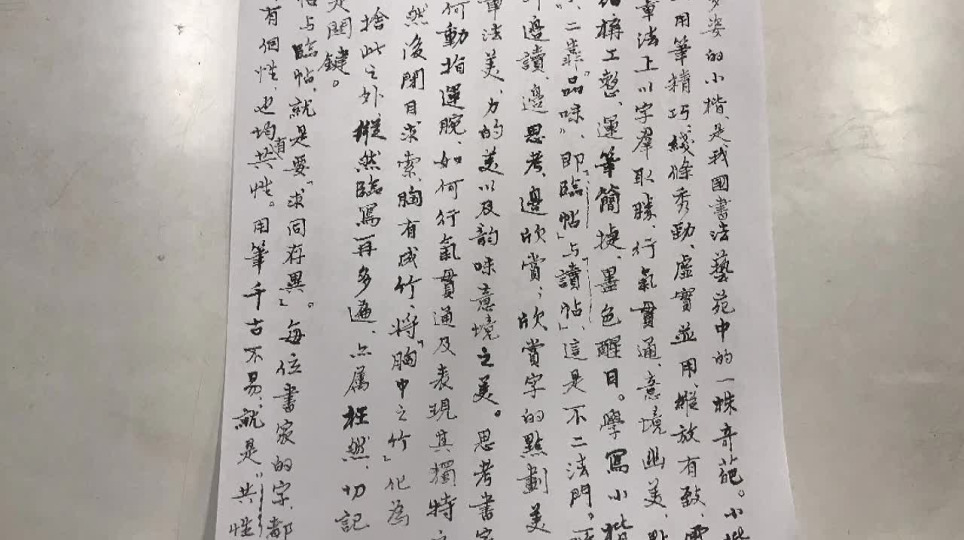 多姿的小楷,是我國書法藝苑中的一株奇葩。小楷
用筆精巧,綫條秀勁,虛實並用,縱放有致,
章法上以字羣取勝,行氣貫通,意境幽美,
構工整,運筆簡捷,墨色醒目。學寫小楷
二靠"品味",即「臨帖」與「讀帖」,這是不二法門。
邊讀、邊思考、邊欣賞;欣賞字的點劃美
章法美,力的美以及韵味意境之美。思考書家
何動指運腕,如何行氣貫通及表現其獨特之
然後閉目求索,胸有成竹,將「胸中之竹」化為
捨此之外,縱然臨寫再多遍,亦屬枉然,切記
是関鍵。
帖与臨帖,就是要「求同存異」。每位書家的字,都
有個性,也均有共性。用筆千古不易,就是"共性